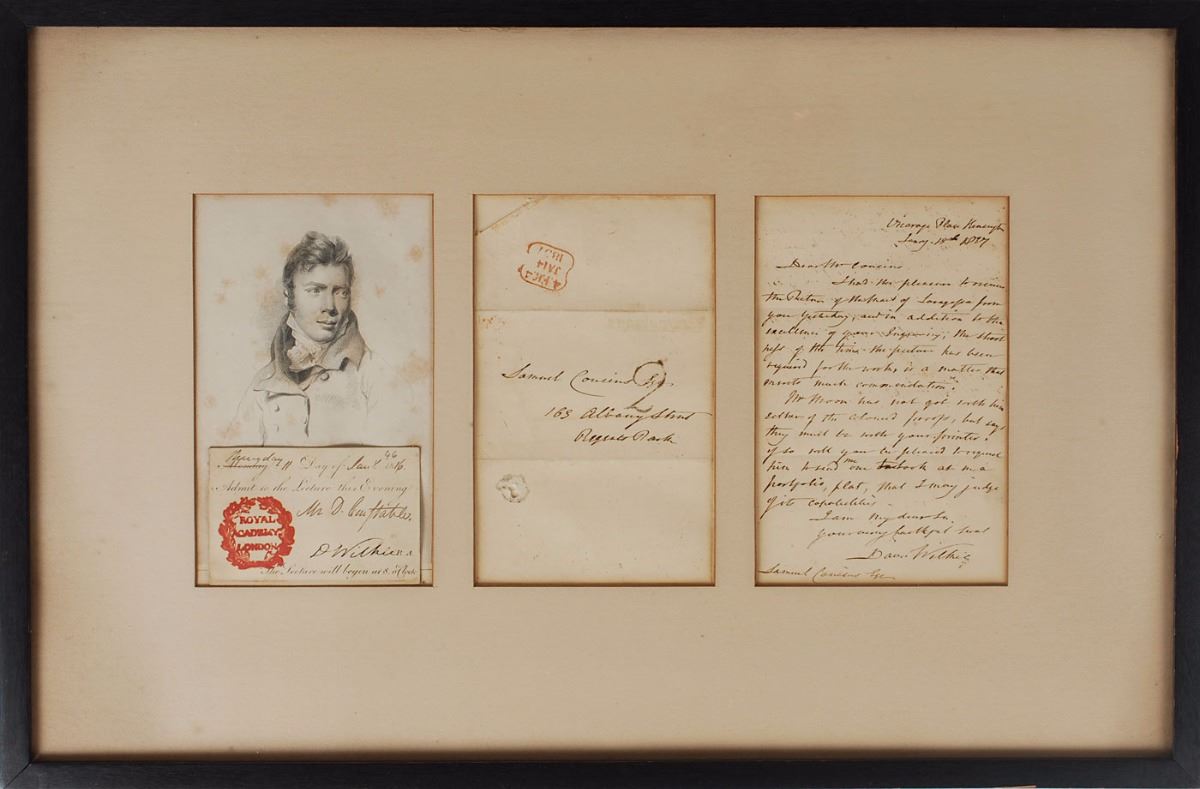 Day of Jan
Admit to the Lecture this Evening
Mr D. Constable
ROYAL
ACADEMY
LONDON
D Wilkie R.A
The Lecture will begin at 8. o'Clock
JA 14
1837
Samuel Cousins Esqr.
165 Albany Street
Regents Park
Vicarage Place Kensington
Jany. 18th 1837
Dear Mr Cousins
I had the pleasure to receive
the Picture of the Maid of Saragossa from
you yesterday, and in addition to the
excellence of your Engraving, the short
ness of the time the picture has been
required for the work is a matter that
merits much commendation.
Mr Moon has not got with him
either of the coloured proofs, but says
they must be with your printer.
If so will you be pleased to request
him to send me one to look at in a
portfolio, flat, that I may judge
of its capabilities
I am My dear Sir
your very faithful Servt
David Wilkie
Samuel Cousins Esqr